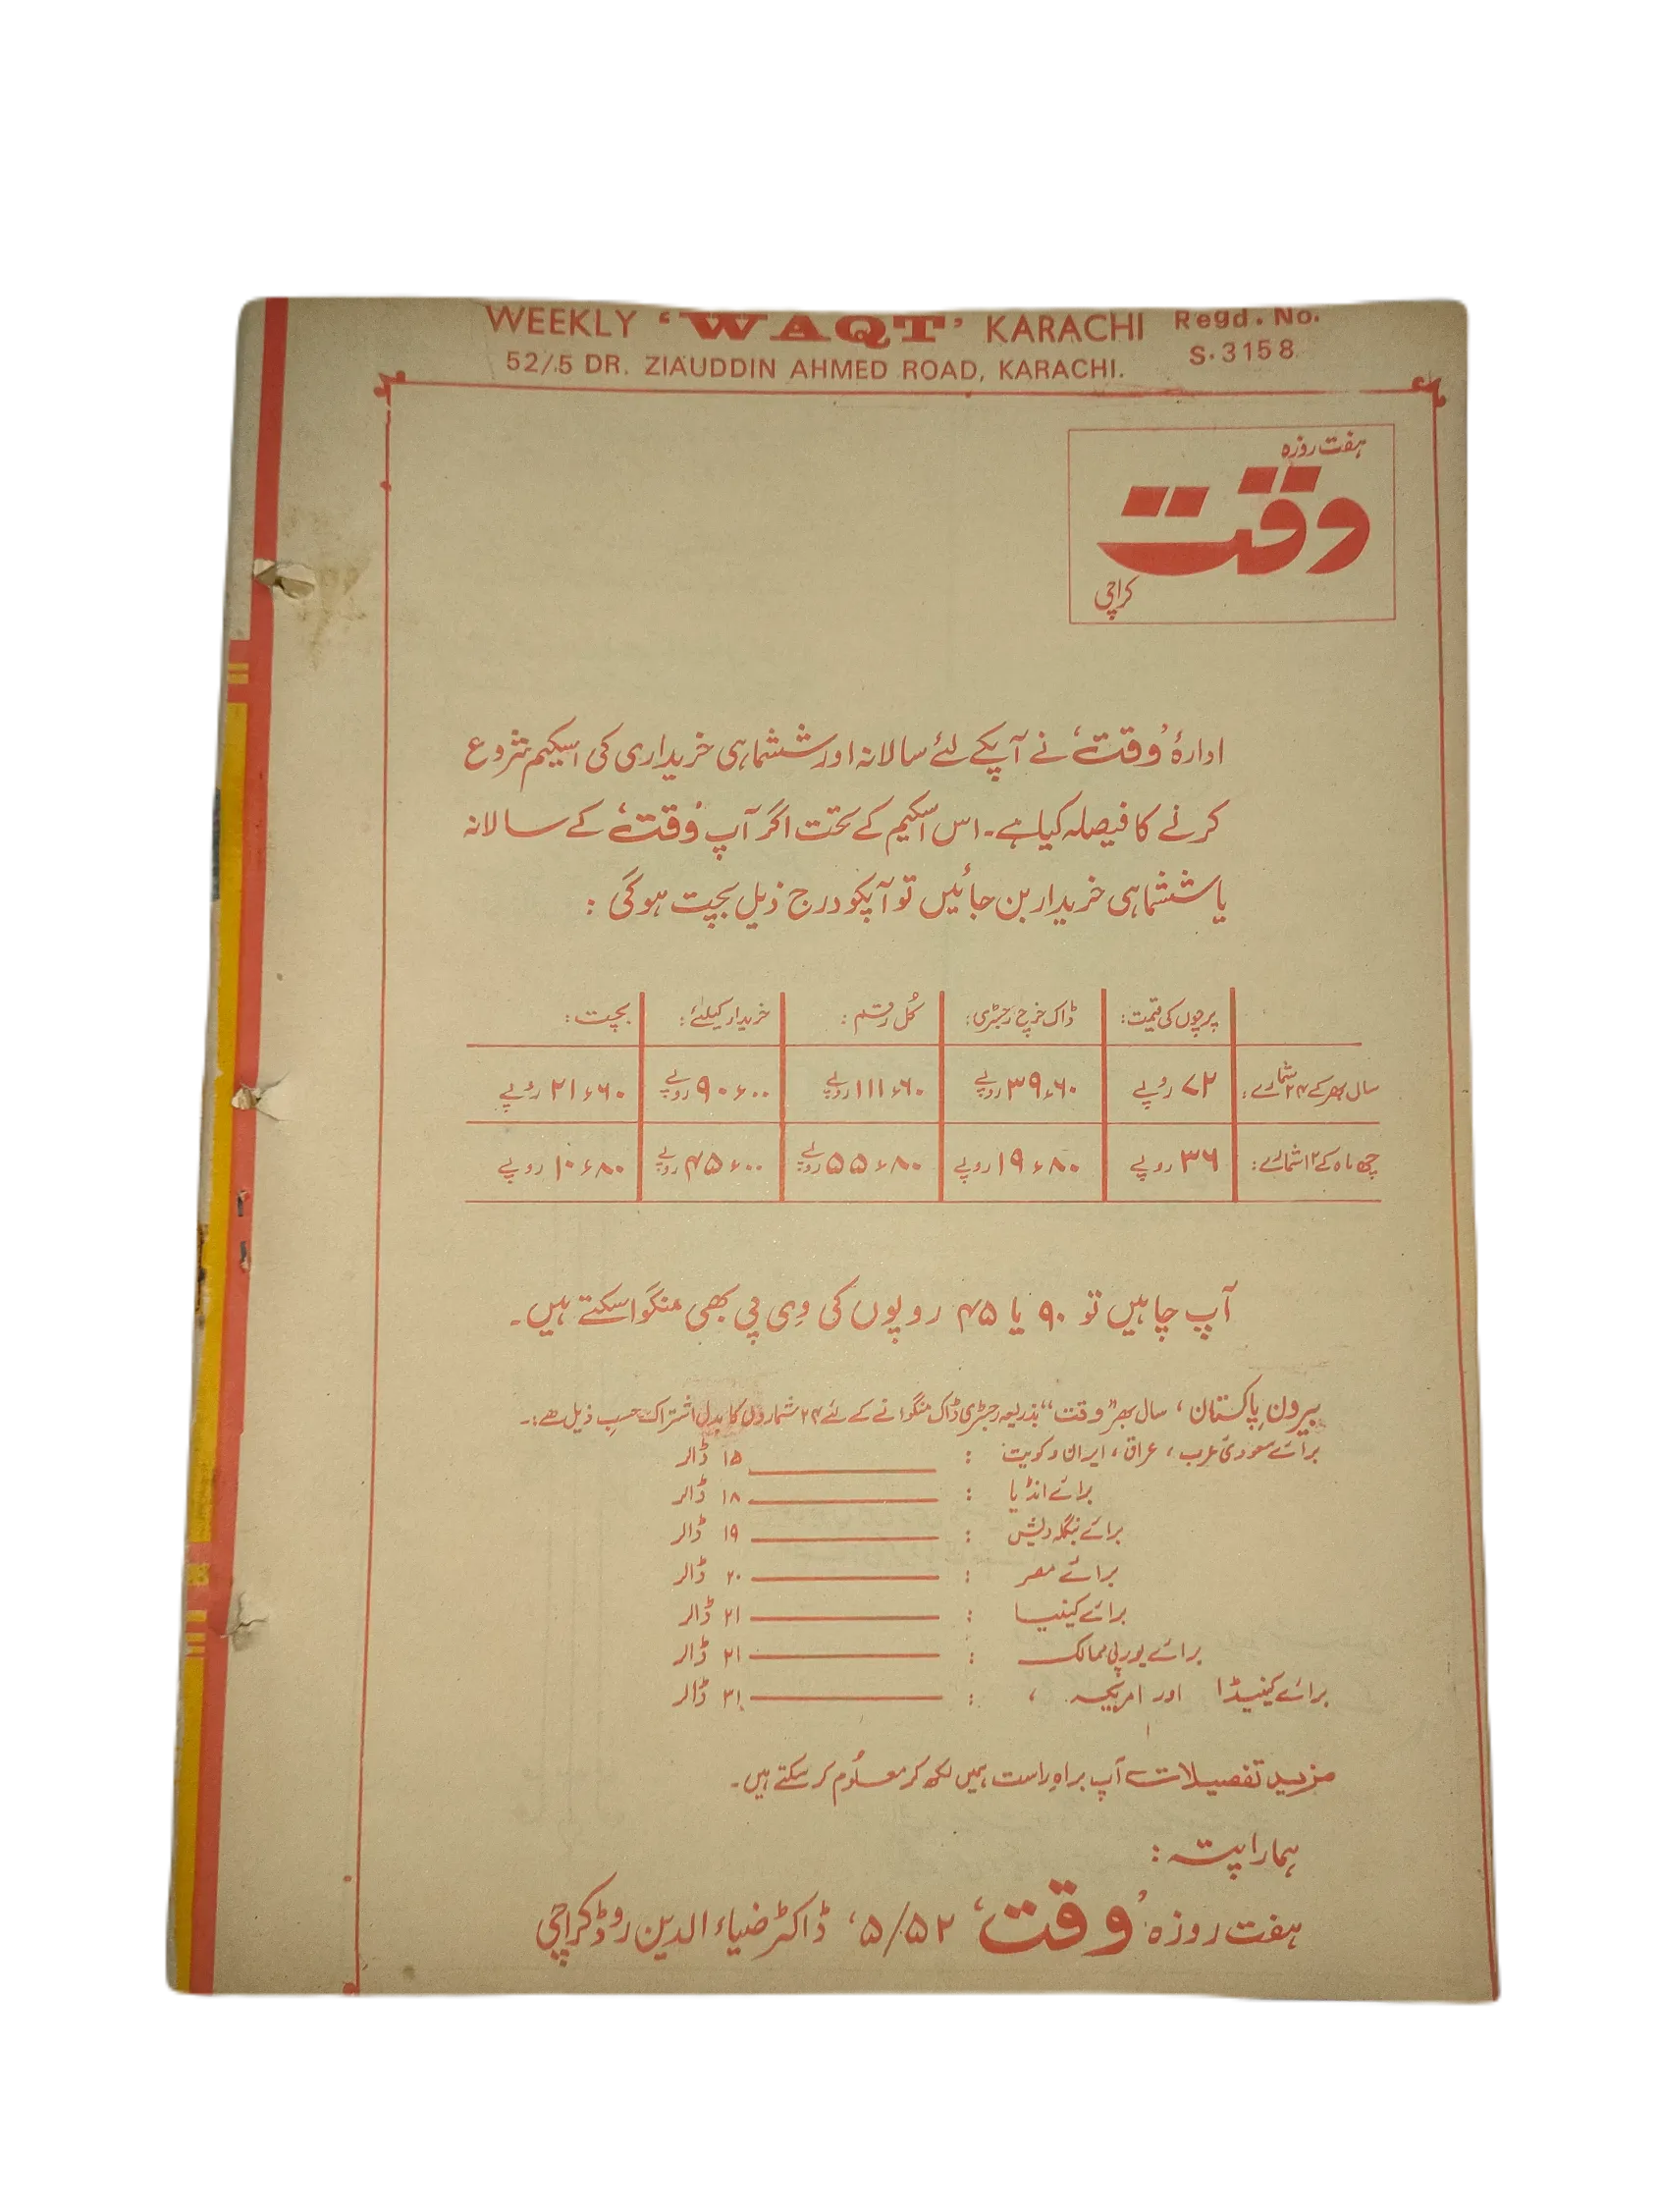 WEEKLY 'WAQT' KARACHI Regd. No.
52/5 DR. ZIAUDDIN AHMED ROAD, KARACHI. S.3158
ہفت روزہ
وقت
کراچی
ادارۂ 'وقت' نے آپکے لئے سالانہ اور ششماہی خریداری کی اسکیم شروع
کرنے کا فیصلہ کیا ہے۔ اس اسکیم کے تحت اگر آپ 'وقت' کے سالانہ
یا ششماہی خریدار بن جائیں تو آپکو درج ذیل بچت ہوگی :
پرچوں کی قیمت : ڈاک خرچ رجسٹری : کُل رقم : خریدار کیلئے : بچت :
سال بھر کے ۲۴ شمارے : ۷۲ روپے ۳۹ء۶۰ روپے ۱۱۱ء۶۰ روپے ۹۰ء۰۰ روپے ۲۱ء۶۰ روپے
چھ ماہ کے ۱۲ شمارے : ۳۶ روپے ۱۹ء۸۰ روپے ۵۵ء۸۰ روپے ۴۵ء۰۰ روپے ۱۰ء۸۰ روپے
آپ چاہیں تو ۹۰ یا ۴۵ روپوں کی وی پی بھی منگوا سکتے ہیں۔
بیرونِ پاکستان، سال بھر "وقت" بذریعہ رجسٹری ڈاک منگوانے کے لئے ۲۴ شماروں کا بدل اشتراک حسبِ ذیل ہے :۔
برائے سعودی عرب، عراق، ایران و کویت : ۱۵ ڈالر
برائے انڈیا : ۱۸ ڈالر
برائے بنگلہ دیش : ۱۹ ڈالر
برائے مصر : ۲۰ ڈالر
برائے کینیا : ۲۱ ڈالر
برائے یورپی ممالک : ۲۱ ڈالر
برائے کینیڈا اور امریکہ ، : ۳۱ ڈالر
مزید تفصیلات آپ براہِ راست ہمیں لکھ کر معلوم کر سکتے ہیں۔
ہمارا پتہ :
ہفت روزہ 'وقت' ۵/۵۲، ڈاکٹر ضیاء الدین روڈ کراچی